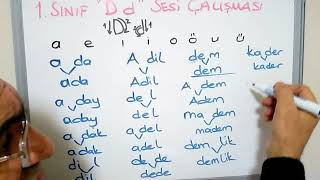 1. SINIF "D d" SESİ ÇALIŞMASI
D d
a e ı i o ö u ü
a da
ada
a day
aday
a dak
adak
di l
dil
A dil
Adil
de l
del
a del
adel
de de
dede
de m
dem
A dem
Adem
ma dem
madem
dem lik
demlik
ka der
kader